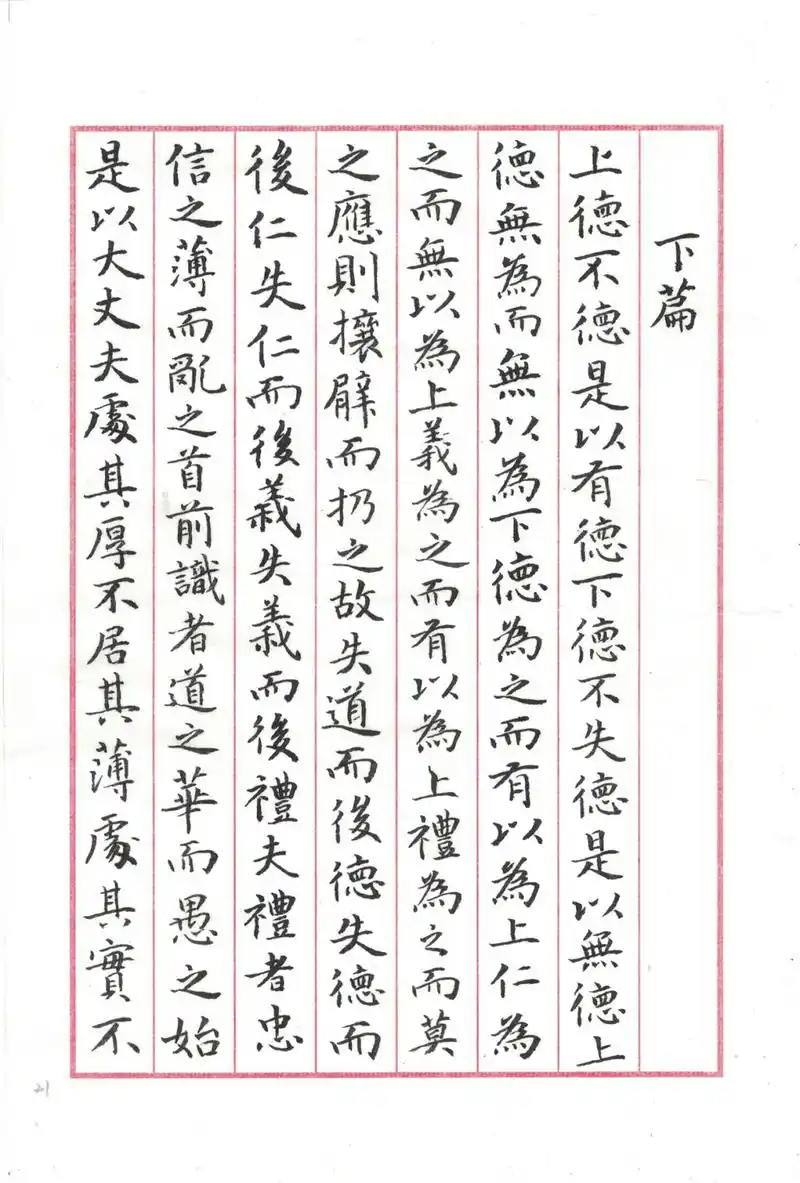 下篇
上德不德是以有德下德不失德是以無德上
德無為而無以為下德為之而有以為上仁為
之而無以為上義為之而有以為上禮為之而莫
之應則攘臂而扔之故失道而後德失德而
後仁失仁而後義失義而後禮夫禮者忠
信之薄而亂之首前識者道之華而愚之始
是以大丈夫處其厚不居其薄處其實不
21